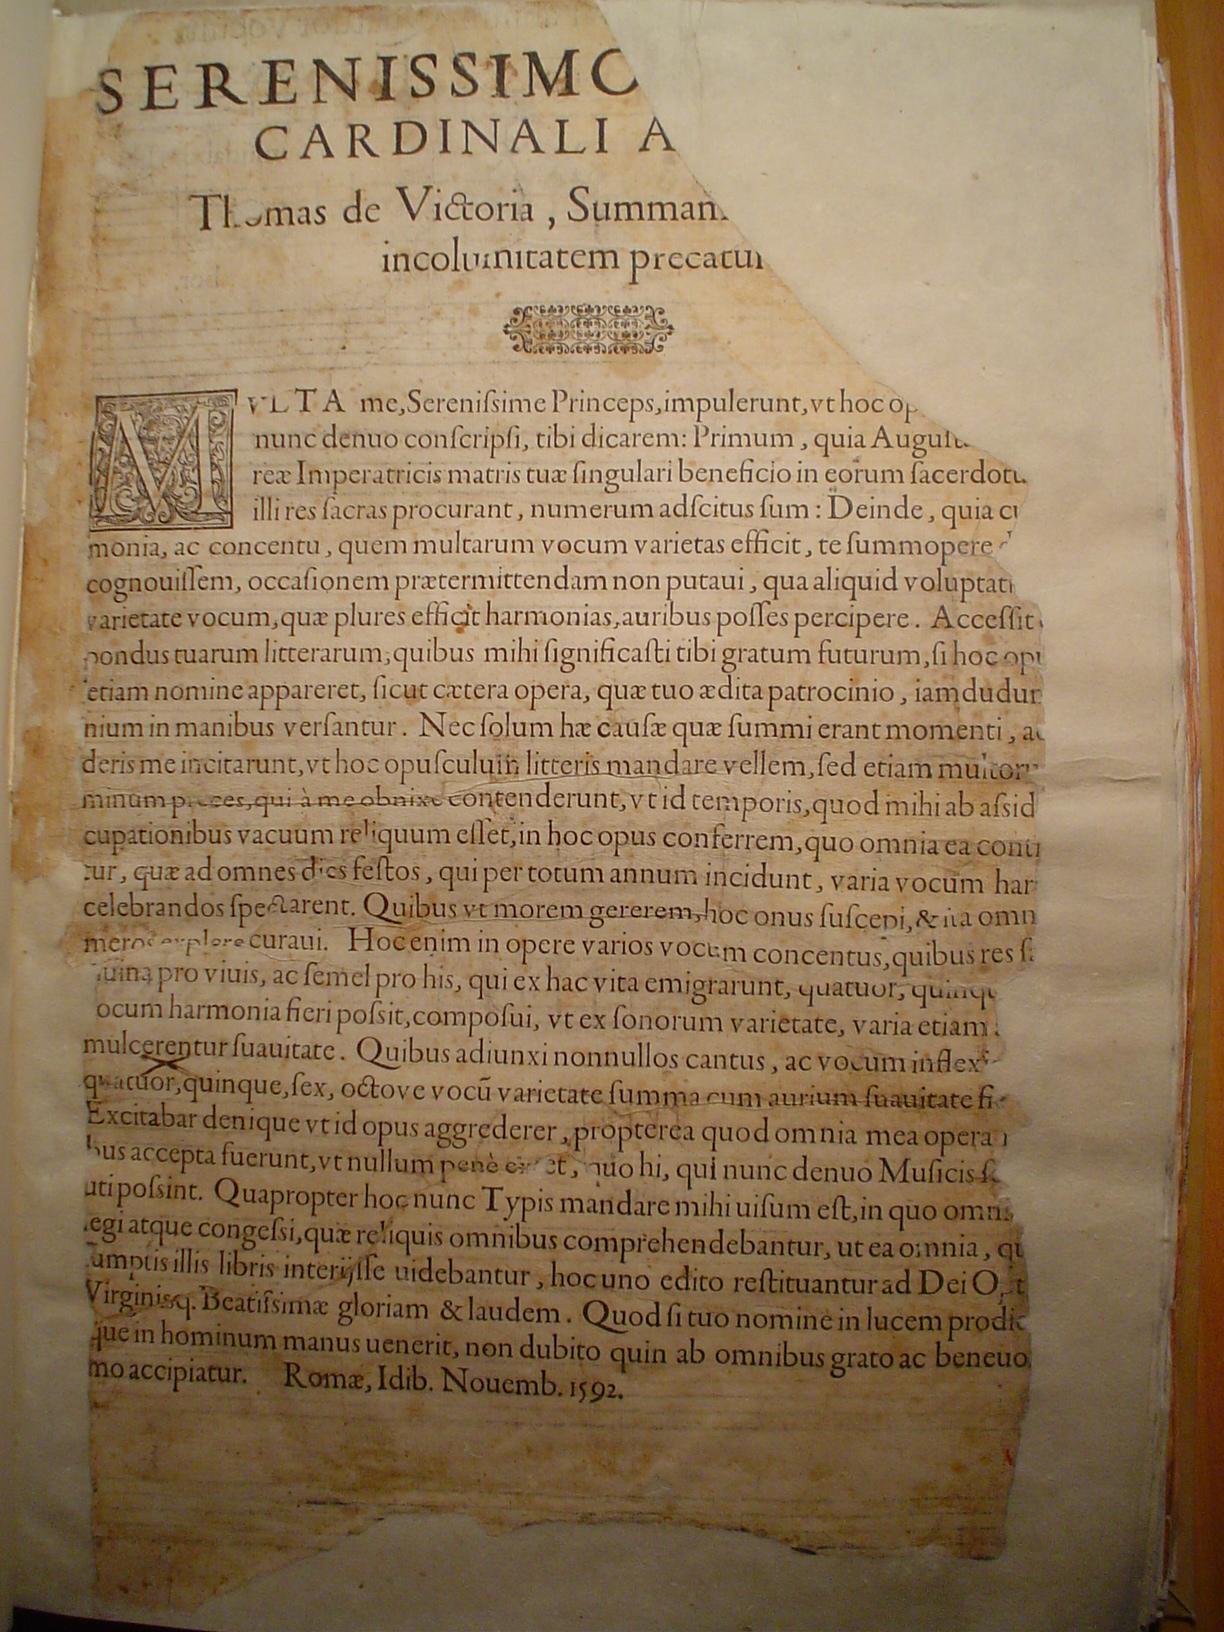 SERENISSIMO
CARDINALI A
Thomas de Victoria, Summam
incolumitatem precatur
MVLTA me, Sereniſsime Princeps, impulerunt, vt hoc
nunc denuo conſcripſi, tibi dicarem: Primum, quia
reæ Imperatricis matris tuæ ſingulari beneficio in eorum
illi res ſacras procurant, numerum adſcitus ſum: Deinde, quia
monia, ac concentu, quem multarum vocum varietas efficit, te ſummopere
cognouiſſem, occaſionem prætermittendam non putaui, qua aliquid
varietate vocum, quæ plures efficit harmonias, auribus poſſes percipere. Acceſſit
pondus tuarum litterarum, quibus mihi ſignificaſti tibi gratum futurum, ſi hoc
etiam nomine appareret, ſicut cætera opera, quæ tuo ædita patrocinio,
nium in manibus verſantur. Nec ſolum hæ cauſæ quæ ſummi erant momenti,
deris me incitarunt, vt hoc opuſculum litteris mandare vellem, ſed etiam
minum preces, qui à me obnixe contenderunt, vt id temporis, quod mihi ab aſsid
cupationibus vacuum reliquum eſſet, in hoc opus conferrem, quo omnia ea
tur, quæ ad omnes dies feſtos, qui per totum annum incidunt, varia vocum har
celebrandos ſpectarent. Quibus vt morem gererem, hoc onus ſuſcepi, & ita omn
explere curaui. Hoc enim in opere varios vocum concentus, quibus res
uina pro viuis, ac ſemel pro his, qui ex hac vita emigrarunt, quatuor,
ocum harmonia fieri poſsit, compoſui, vt ex ſonorum varietate, varia etiam
mulcerentur ſuauitate. Quibus adiunxi nonnullos cantus, ac vocum
quatuor, quinque, ſex, octove vocũ varietate ſumma cum aurium ſuauitate
Excitabar denique vt id opus aggrederer, propterea quod omnia mea opera
bus accepta fuerunt, vt nullum penè quo hi, qui nunc denuo Muſicis
uti poſsint. Quapropter hoc nunc Typis mandare mihi uiſum eſt, in quo
legi atque congeſsi, quæ reliquis omnibus comprehendebantur, ut ea omnia,
umptis illis libris interijſſe uidebantur, hoc uno edito reſtituantur ad Dei
Virginisq. Beatiſsimæ gloriam & laudem. Quod ſi tuo nomine in lucem
que in hominum manus uenerit, non dubito quin ab omnibus grato ac beneuo
mo accipiatur. Romæ, Idib. Nouemb. 1592.